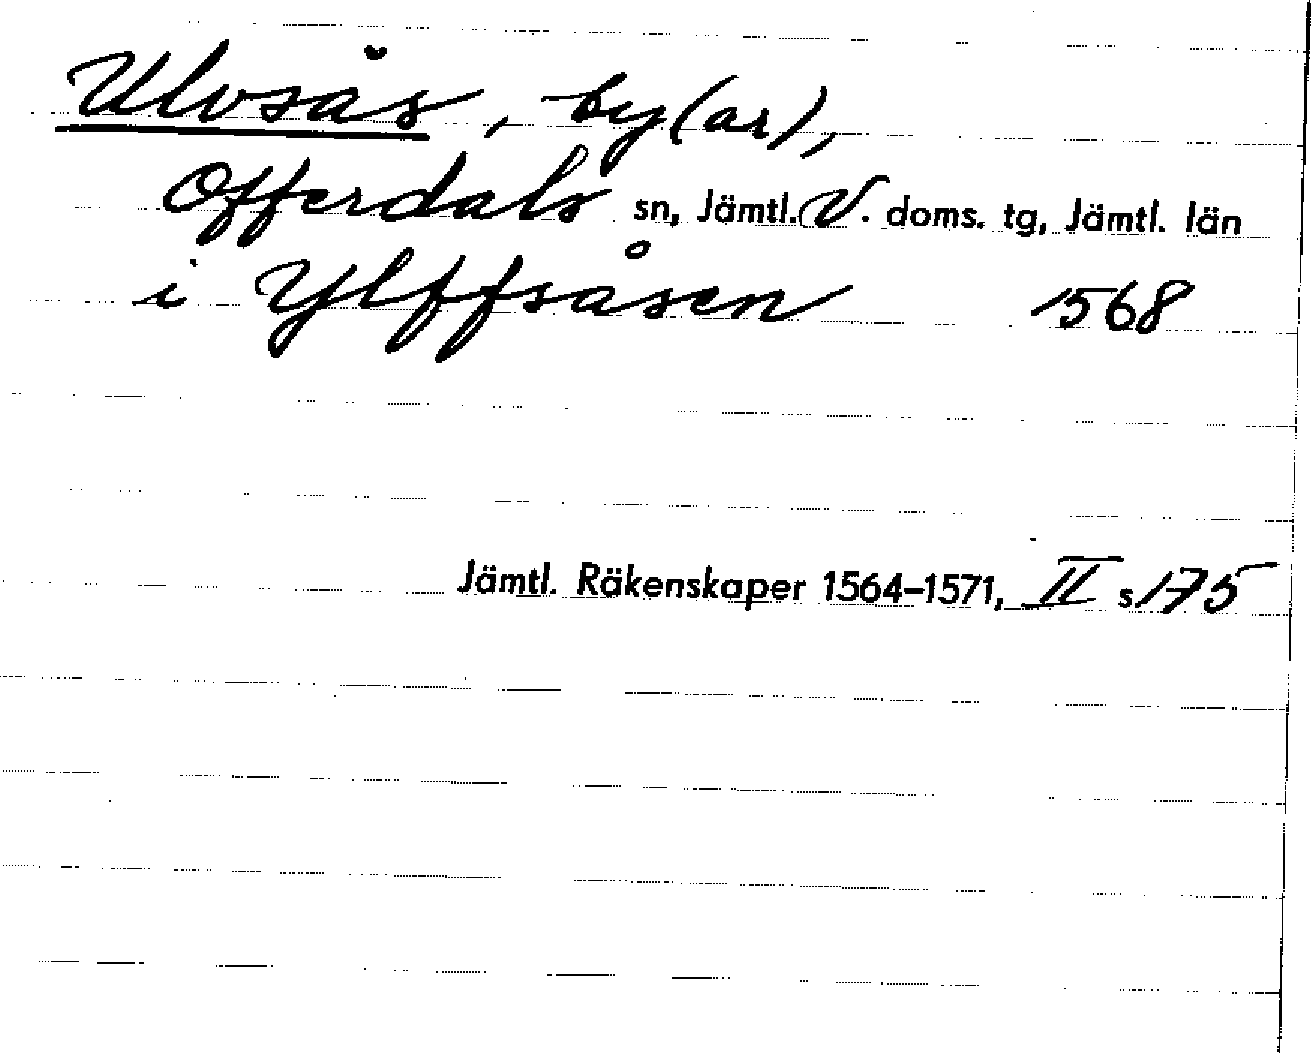 Ulvsås, by(ar),
Offerdals sn, Jämtl. V. doms. tg, Jämtl. län
i Ylffsåsen 1568
Jämtl. Räkenskaper 1564–1571, II s. 175